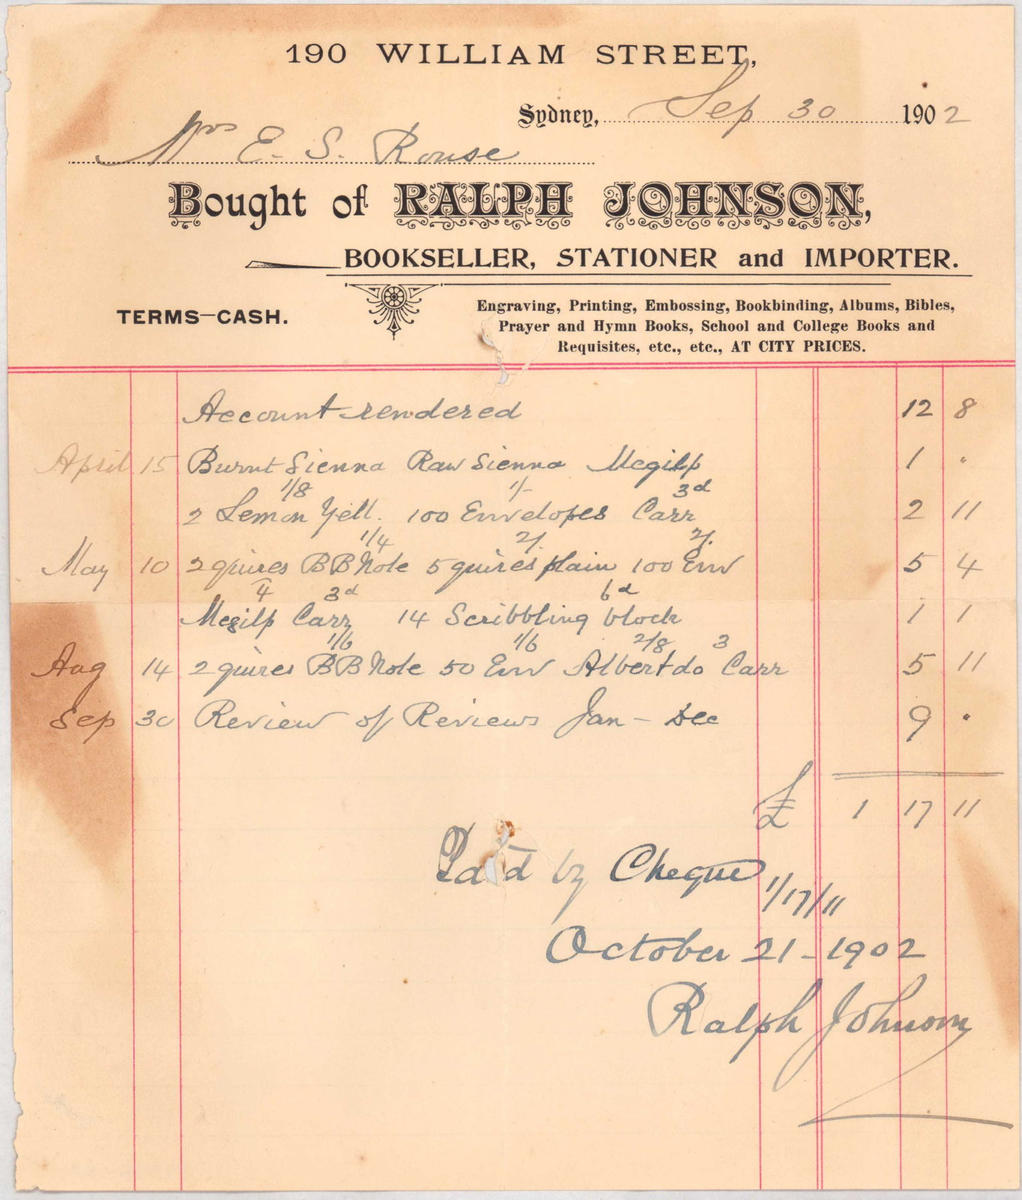 190 WILLIAM STREET,
Sydney, Sep 30 1902
Mrs E. S. Rouse
Bought of RALPH JOHNSON,
BOOKSELLER, STATIONER and IMPORTER.
TERMS—CASH.
Engraving, Printing, Embossing, Bookbinding, Albums, Bibles,
Prayer and Hymn Books, School and College Books and
Requisites, etc., etc., AT CITY PRICES.
Account rendered 12 8
April 15 Burnt Sienna Raw Sienna Megilp 1 "
1/8 1/- 3d
2 Lemon Yell. 100 Envelopes Carr 2 11
1/4 2/. 2/.
May 10 2 quires BB Note 5 quires plain 100 Env 5 4
4 3d 6d
Megilp Carr 14 Scribbling block 1 1
1/6 1/6 2/8 3
Aug 14 2 quires BB Note 50 Env Albert do Carr 5 11
Sep 30 Review of Reviews Jan - Dec 9 "
£ 1 17 11
Paid by Cheque
1/17/11
October 21 - 1902
Ralph Johnson